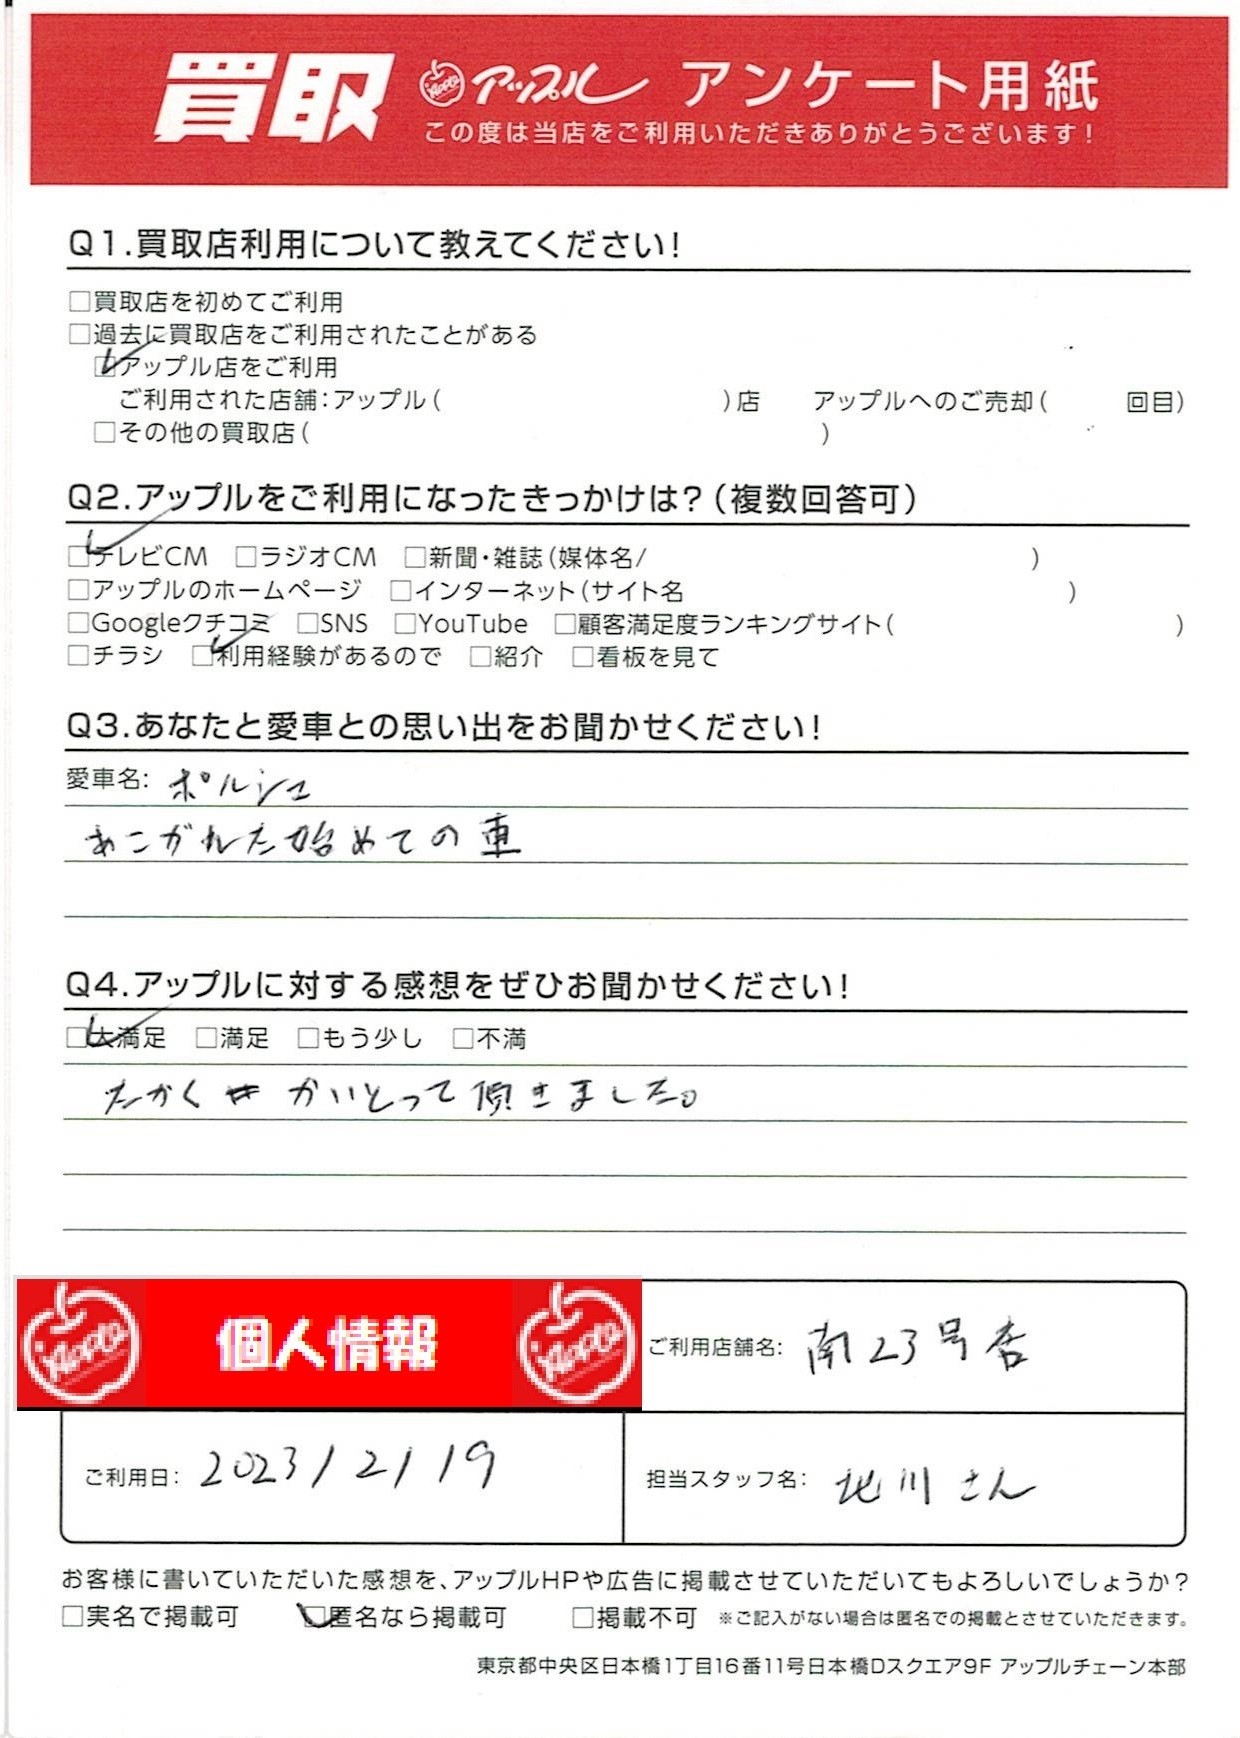 買取 アップル アンケート用紙
この度は当店をご利用いただきありがとうございます!
Q1.買取店利用について教えてください!
□買取店を初めてご利用
□過去に買取店をご利用されたことがある
☑アップル店をご利用
ご利用された店舗:アップル( )店 アップルへのご売却( 回目)
□その他の買取店( )
Q2.アップルをご利用になったきっかけは?(複数回答可)
☑テレビCM □ラジオCM □新聞・雑誌(媒体名/ )
□アップルのホームページ □インターネット(サイト名 )
□Googleクチコミ □SNS □YouTube □顧客満足度ランキングサイト( )
□チラシ ☑利用経験があるので □紹介 □看板を見て
Q3.あなたと愛車との思い出をお聞かせください!
愛車名: ポルシェ
あこがれた始めての車
Q4.アップルに対する感想をぜひお聞かせください!
☑大満足 □満足 □もう少し □不満
たかく かいとって頂きました。
Apple 個人情報 Apple
ご利用店舗名: 南23号店
ご利用日: 2023/2/19
担当スタッフ名: 北川さん
お客様に書いていただいた感想を、アップルHPや広告に掲載させていただいてもよろしいでしょうか?
□実名で掲載可 ☑匿名なら掲載可 □掲載不可 ※ご記入がない場合は匿名での掲載とさせていただきます。
東京都中央区日本橋1丁目16番11号日本橋Dスクエア9F アップルチェーン本部